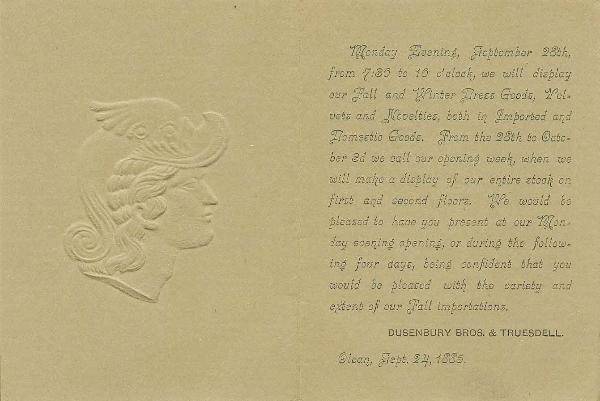 Monday Evening, September 28th,
from 7:30 to 10 o'clock, we will display
our Fall and Winter Dress Goods, Vel-
vets and Novelties, both in Imported and
Domestic Goods. From the 28th to Octo-
ber 3d we call our opening week, when we
will make a display of our entire stock on
first and second floors. We would be
pleased to have you present at our Mon-
day evening opening, or during the follow-
ing four days, being confident that you
would be pleased with the variety and
extent of our Fall importations.
DUSENBURY BROS. & TRUESDELL.
Olean, Sept. 24, 1885.